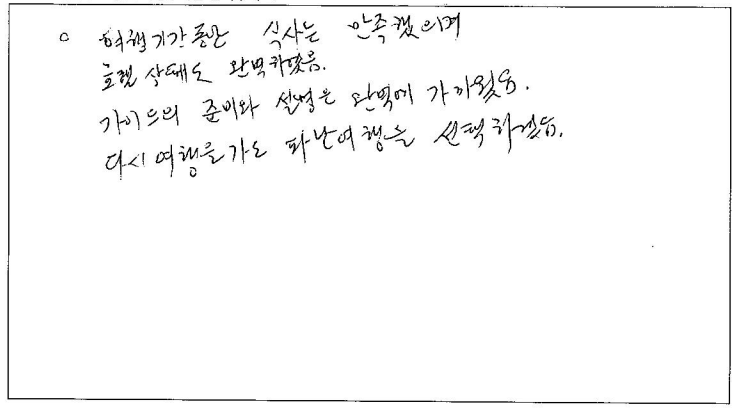 ○ 여행기간동안 식사는 만족했으며
호텔 상태도 완벽하였음.
가이드의 준비와 설명은 완벽에 가까웠음.
다시 여행을가도 파난여행을 선택하겠음.